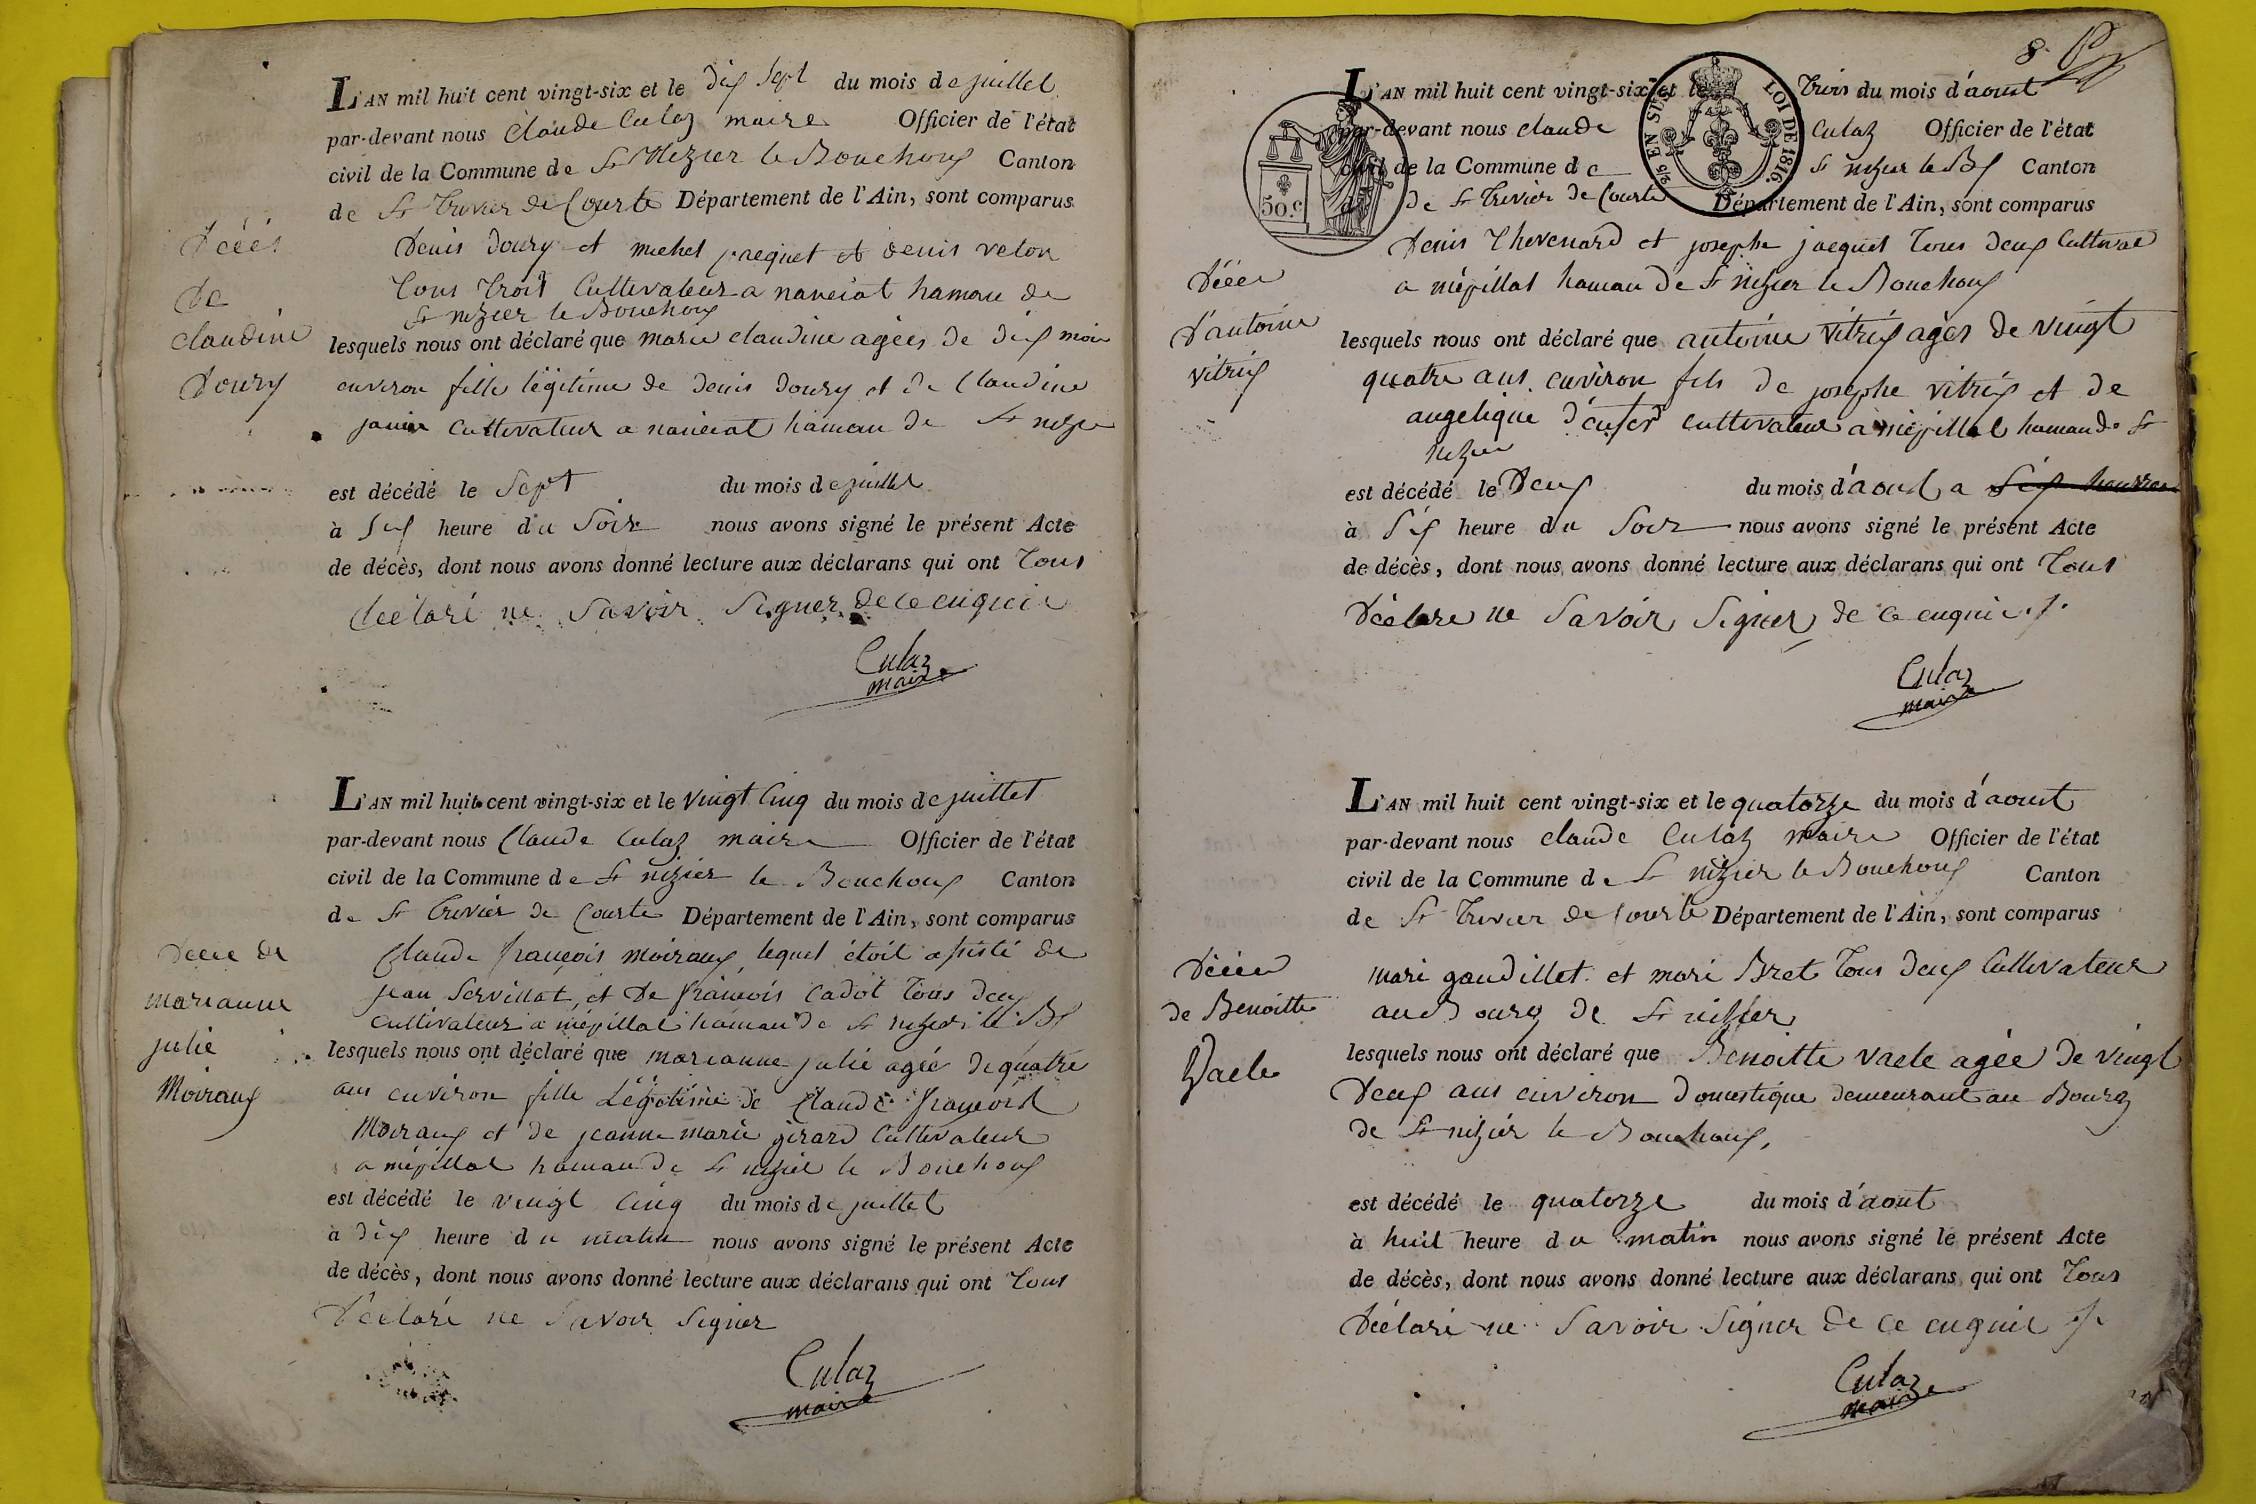 L'AN mil huit cent vingt-six et le dix sept du mois de juillet
par-devant nous Claude Culaz maire Officier de l'état
civil de la Commune de St Nizier le Bouchoux Canton
de St Trivier de Courte Département de l'Ain, sont comparus
Décés
de
claudine
Doury
Denis Doury et michel et denis velon
Tous Trois Cultivateur a naneiat hamau de
St nizier le Bouchoux
lesquels nous ont déclaré que marie claudine agées de dix mois
environ fille légitime de denis doury et de Claudine
janin Cultivateur a naneiat hamau de St nizie
est décédé le Sept du mois de juillet
à Six heure du Soir nous avons signé le présent Acte
de décès, dont nous avons donné lecture aux déclarans qui ont Tous
declaré ne Savoir Signer de ce enquie
Culaz
maire
L'AN mil huit cent vingt-six et le vingt Cinq du mois de juillet
par-devant nous Claude Culaz maire Officier de l'état
civil de la Commune de St nizier le Bouchoux Canton
de St Trivier de Courte Département de l'Ain, sont comparus
Décee de
marianne
julie
Moiraux
Claude françois Moiraux, lequel étoit asisté de
jean Servillat, et De françois Cadot Tous deux
Cultivateur a mépillat hamau de St nizier le Bx
lesquels nous ont déclaré que marianne julie agée de quatre
ans environ fille Légitime de Claude françois
Moiraux et de jeanne marie girard Cultivateur
a mépillat hamau de St nizier le Bouchoux
est décédé le vingt Cinq du mois de juillet
à dix heure du matin nous avons signé le présent Acte
de décès, dont nous avons donné lecture aux déclarans qui ont Tous
Déclaré ne Savoir Signer
Culaz
maire
8.
50.c
5/5 EN SUS LOI DE 1816.
L'AN mil huit cent vingt-six et le Trois du mois d'aoust
par-devant nous claude Culaz Officier de l'état
civil de la Commune de St nizier le Bx Canton
de St Trivier de Courte Département de l'Ain, sont comparus
Décee
D'antoine
vitrix
Denis Thevenard et josephe jacquet Tous deux Cultivat
a mépillat hamau de St nizier le Bouchoux
lesquels nous ont déclaré que antoine vitrix agés de vingt
quatre ans environ fils de josephe vitrix et de
angelique cultivateur a mépillat hamau de St
nizier
est décédé le Deux du mois d'aout a Six heurre
à Six heure du Soir nous avons signé le présent Acte
de décès, dont nous avons donné lecture aux déclarans qui ont Tous
Déclare ne Savoir Signer de ce enquie
Culaz
maire
L'AN mil huit cent vingt-six et le quatorze du mois d'aoust
par-devant nous claude Culaz maire Officier de l'état
civil de la Commune de St nizier le Bouchoux Canton
de St Trivier de Courte Département de l'Ain, sont comparus
Décee
de Benoitte
Vaele
mari gaudillet et mari Bret Tous deux Cultivateur
au Bourg de St nizier
lesquels nous ont déclaré que Benoitte vaele agée de vingt
Deux ans environ Domestique demeurant au Bourg
de St nizier le Bouchoux,
est décédé le quatorze du mois d'aout
à huit heure du matin nous avons signé le présent Acte
de décès, dont nous avons donné lecture aux déclarans qui ont Tous
Déclaré ne Savoir Signer de ce enquie
Culaz
maire